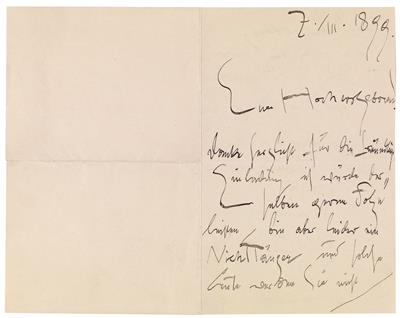 7./III. 1899.
Euer Hochwohlgeboren!
Danke herzlichst für die
Einladung ich würde der„
selben gerne Folge
leisten, bin aber leider ein
Nichttänzer und solche
Leute werden Sie nicht